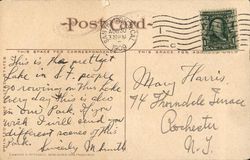 Post Card
THIS SPACE FOR CORRESPONDENCE
THIS SPACE FOR ADDRESS ONLY
This is the prettiest
Lake in S.F. people
go rowing on this Lake
every day. This is also
in our Park. If you
wish I will send you
different scenes of this
Park.
Sincerely M Smith
Mary Harris.
74 Thorndale Terrace
Rochester
N.Y.